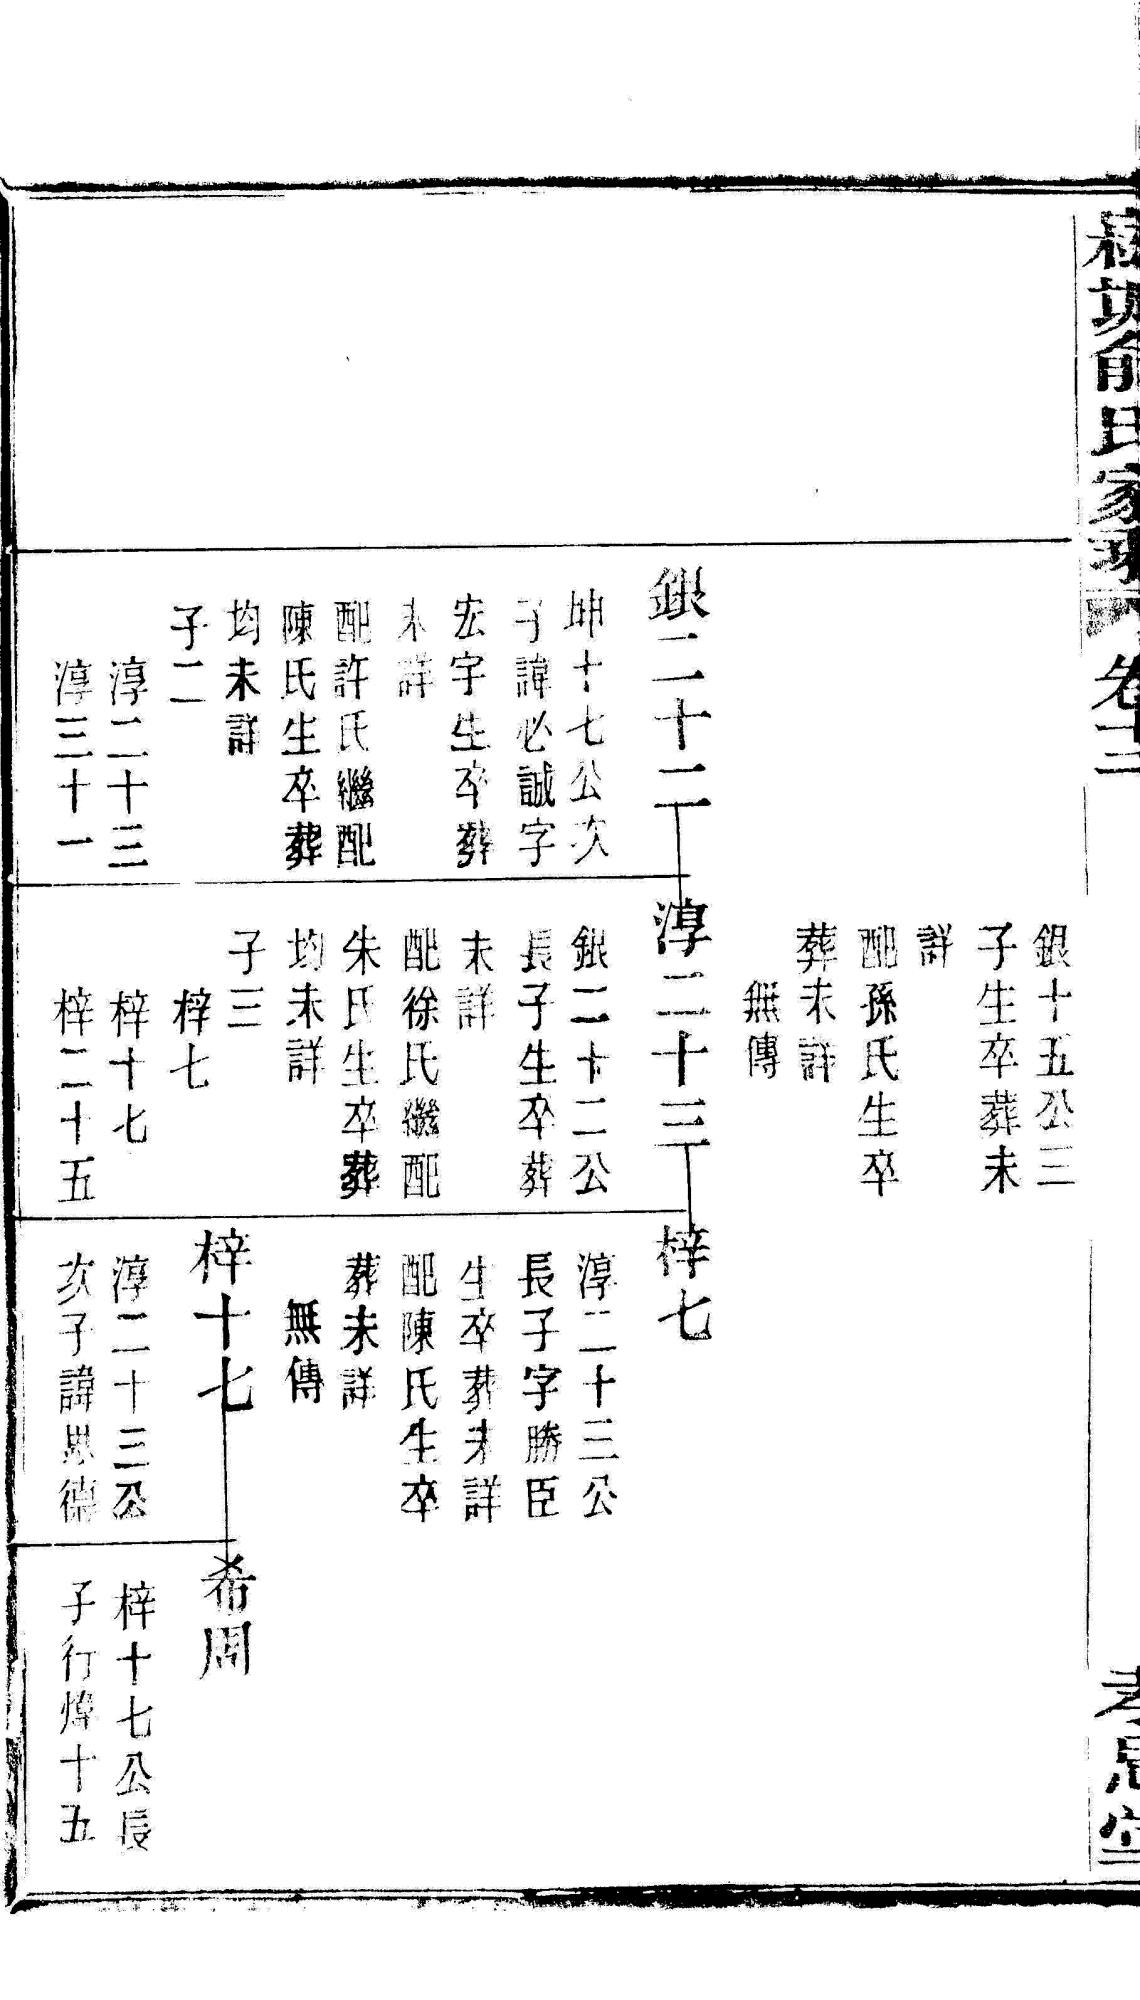 俞氏家乘 卷十三
孝思堂
銀十五公三
子生卒葬未
詳
配孫氏生卒
葬未詳
無傳
銀二十二
坤十七公次
子諱必誠字
宏宇生卒葬
未詳
配許氏繼配
陳氏生卒葬
均未詳
子二
淳二十三
淳三十一
淳二十三
銀二十二公
長子生卒葬
未詳
配徐氏繼配
朱氏生卒葬
均未詳
子三
梓七
梓十七
梓二十五
梓七
淳二十三公
長子字勝臣
生卒葬未詳
配陳氏生卒
葬未詳
無傳
梓十七
淳二十三公
次子諱思德
希周
梓十七公長
子行煒十五